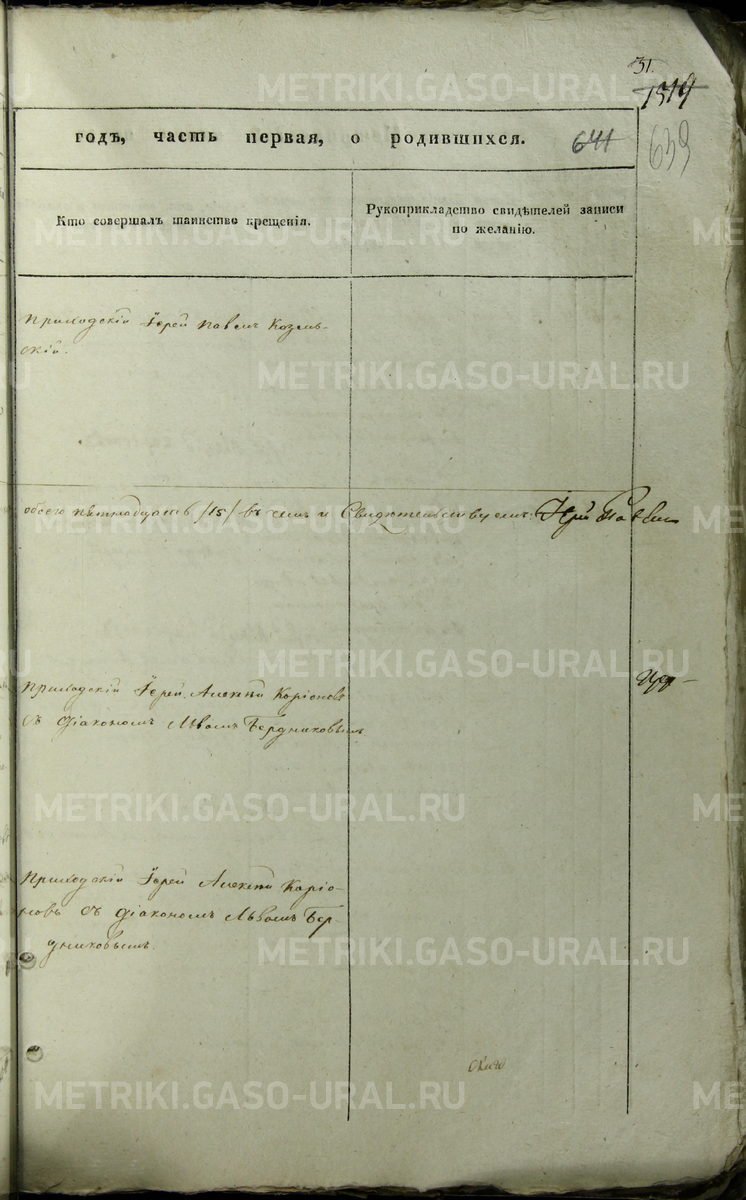 31.
1319
годъ, часть первая, о родившихся.
641
639
Кто совершалъ таинство крещенія.
Рукоприкладство свидѣтелей записи
по желанію.
Приходскій Іерей Павелъ Козель-
скій.
обоего пятнадцать /15/ въ чемъ и Свидѣтельствуемъ: Іерей Павелъ
Приходскій Іерей Алексѣй Каріоновъ
съ Діакономъ Львомъ Бердниковымъ
Приходскій Іерей Алексѣй Каріо-
новъ съ Діакономъ Львомъ Бер-
дниковымъ.
METRIKI.GASO-URAL.RU